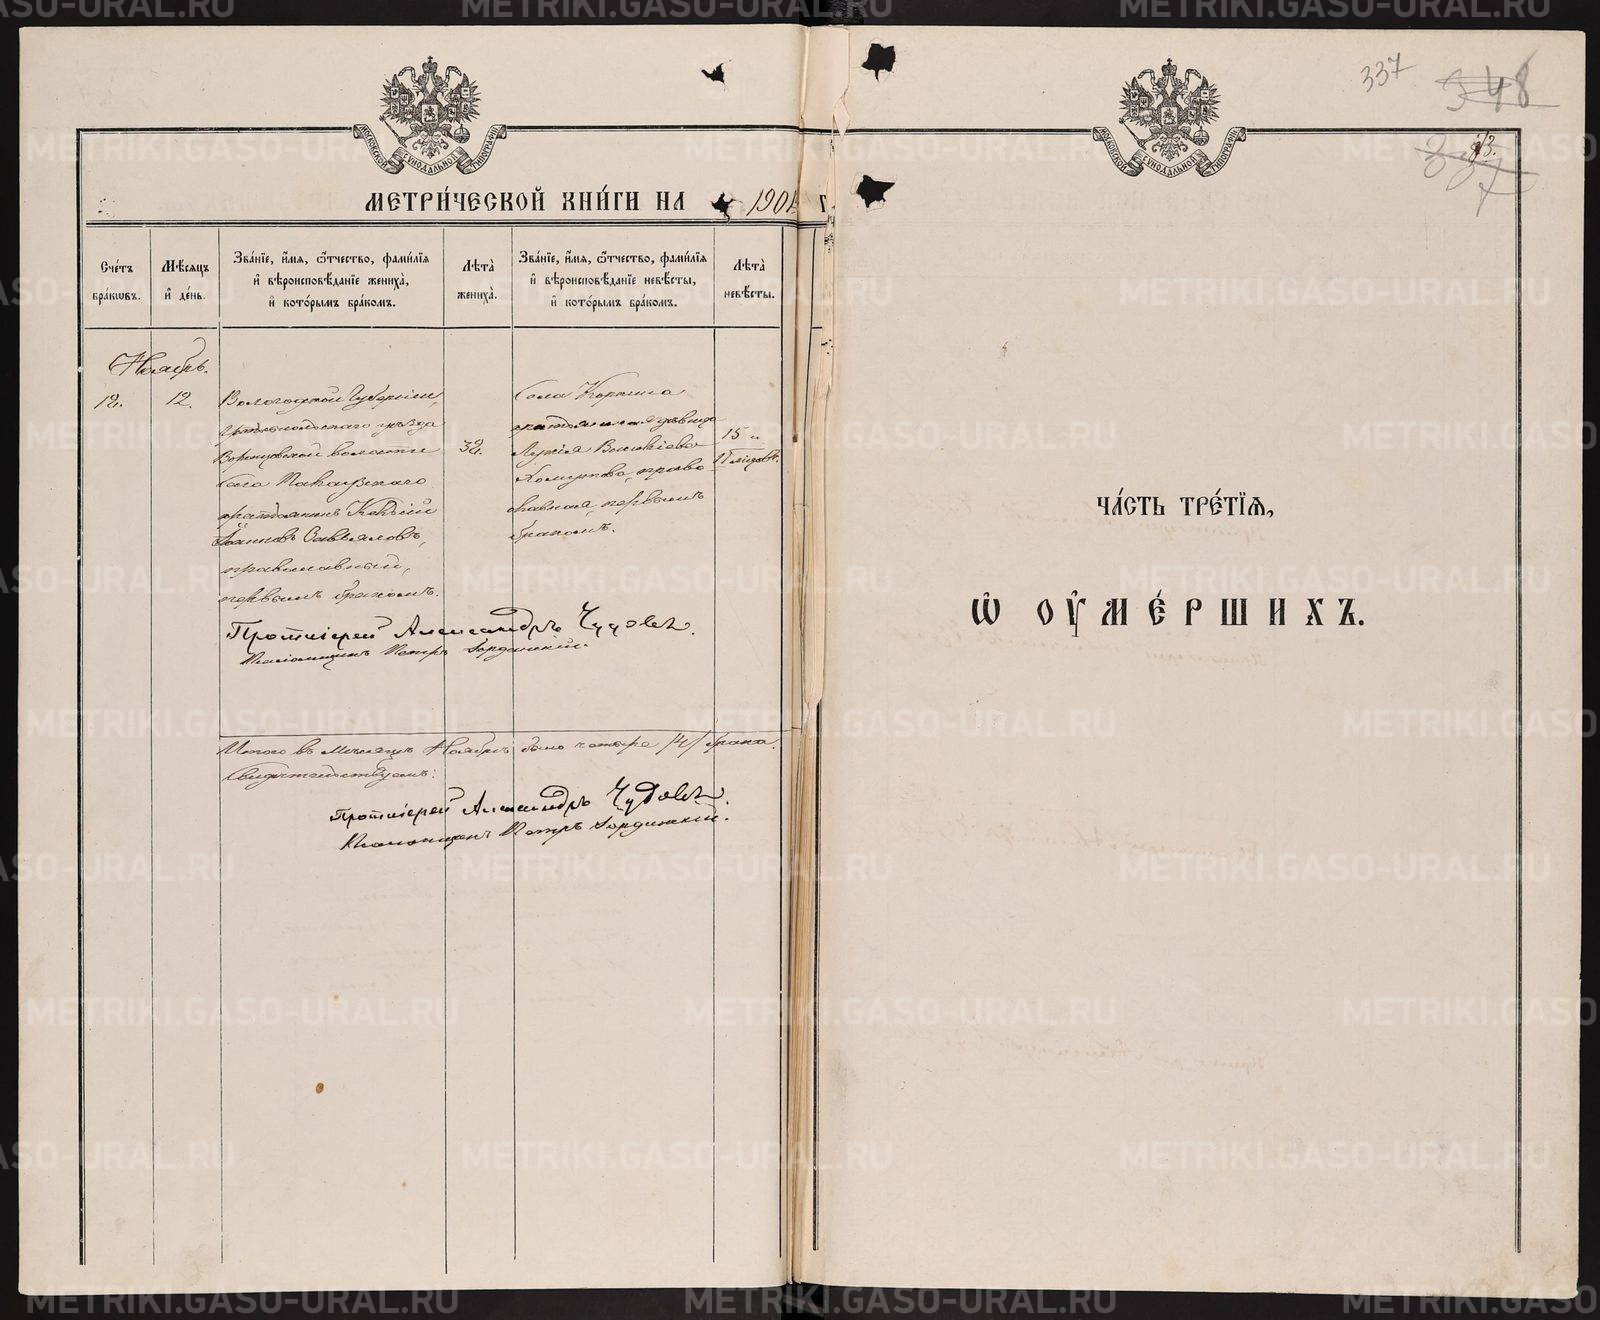 МОСКОВСКОЙ СѴНОДАЛЬНОЙ ТИПОГРАФІИ
МЕТРИ́ЧЕСКОЙ КНИ́ГИ НА 1901 Г
Сче́тъ бра́кѡвъ.
Мѣ́сяцъ и҆ де́нь.
Зва́нїе, и҆́мя, ѻ҆́тчество, фами́лїя
и҆ вѣроисповѣ́данїе жениха̀,
и҆ кото́рымъ бра́комъ.
Лѣта̀ жениха̀.
Зва́нїе, и҆́мя, ѻ҆́тчество, фами́лїя
и҆ вѣроисповѣ́данїе невѣ́сты,
и҆ кото́рымъ бра́комъ.
Лѣта̀ невѣ́сты.
Ноябрь.
12.
12.
Вологодской Губерніи,
уѣзда
волости
села
крестьянинъ
Іоанновъ Завьяловъ,
православный,
первымъ бракомъ.
32.
Села
крестьянская дѣвица
право
славная, первымъ
бракомъ.
15 и
Протоіерей Александръ Чудовъ.
Псаломщикъ Петръ
Итого въ мѣсяцѣ Ноябрѣ было четыре /4/ брака.
Свидѣтельствуемъ:
Протоіерей Александръ Чудовъ.
Псаломщикъ Петръ
337
348
337
МОСКОВСКОЙ СѴНОДАЛЬНОЙ ТИПОГРАФІИ
ЧА́СТЬ ТРЕ́ТЇЯ,
Ѡ҆ ОУ҆МЕ́РШИХЪ.
METRIKI.GASO-URAL.RU